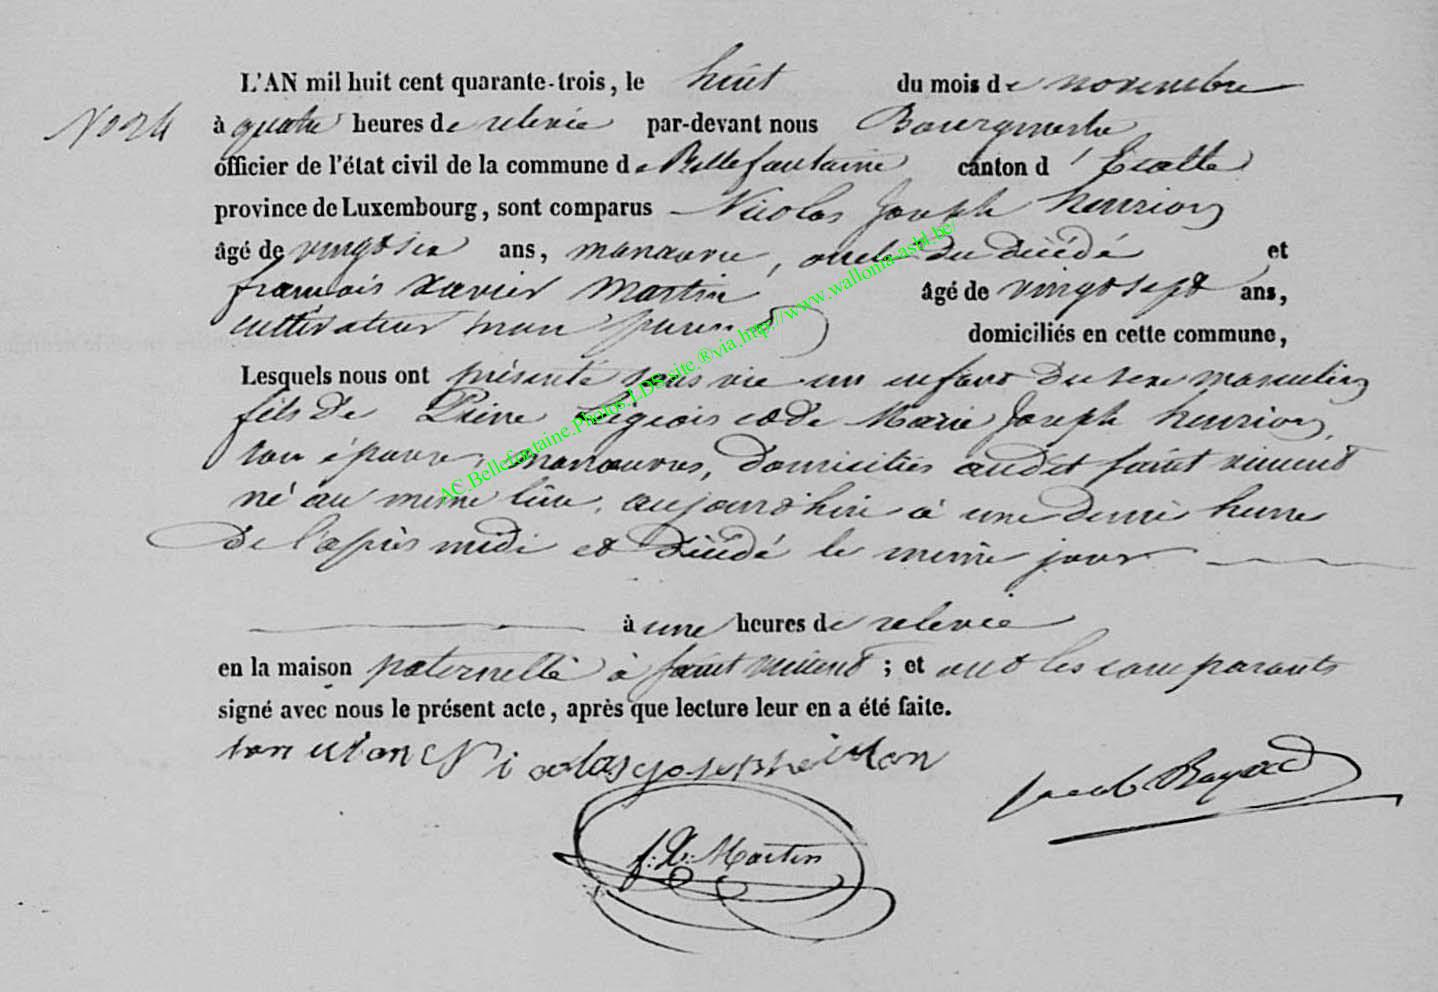 L'AN mil huit cent quarante-trois, le huit du mois de novembre
No 24 à quatre heures de relevée par-devant nous Bourgmestre
officier de l'état civil de la commune de Bellefontaine canton d'Etalle
province de Luxembourg, sont comparus Nicolas Joseph henrion
âgé de vingtsix ans, manœuvre, oncle du décédé et
françois Xavier Martin âgé de vingtsept ans,
cultivateur non parent domiciliés en cette commune,
Lesquels nous ont présenté sans vie un enfant du sexe masculin
fils de Pierre Légeois et de Marie Joseph henrion,
son épouse, manœuvres, domiciliés audit saint vincent
né au même lieu, aujourd'hui à une demi heure
de l'après midi et décédé le même jour
à une heures de relevée
en la maison paternelle à saint vincent ; et ont les comparants
signé avec nous le présent acte, après que lecture leur en a été faite.
Nicolas joseph
Bayard
f: X: Martin
AC.Bellefontaine.Photos.LDS.site.®via.http://www.wallonia-asbl.be/